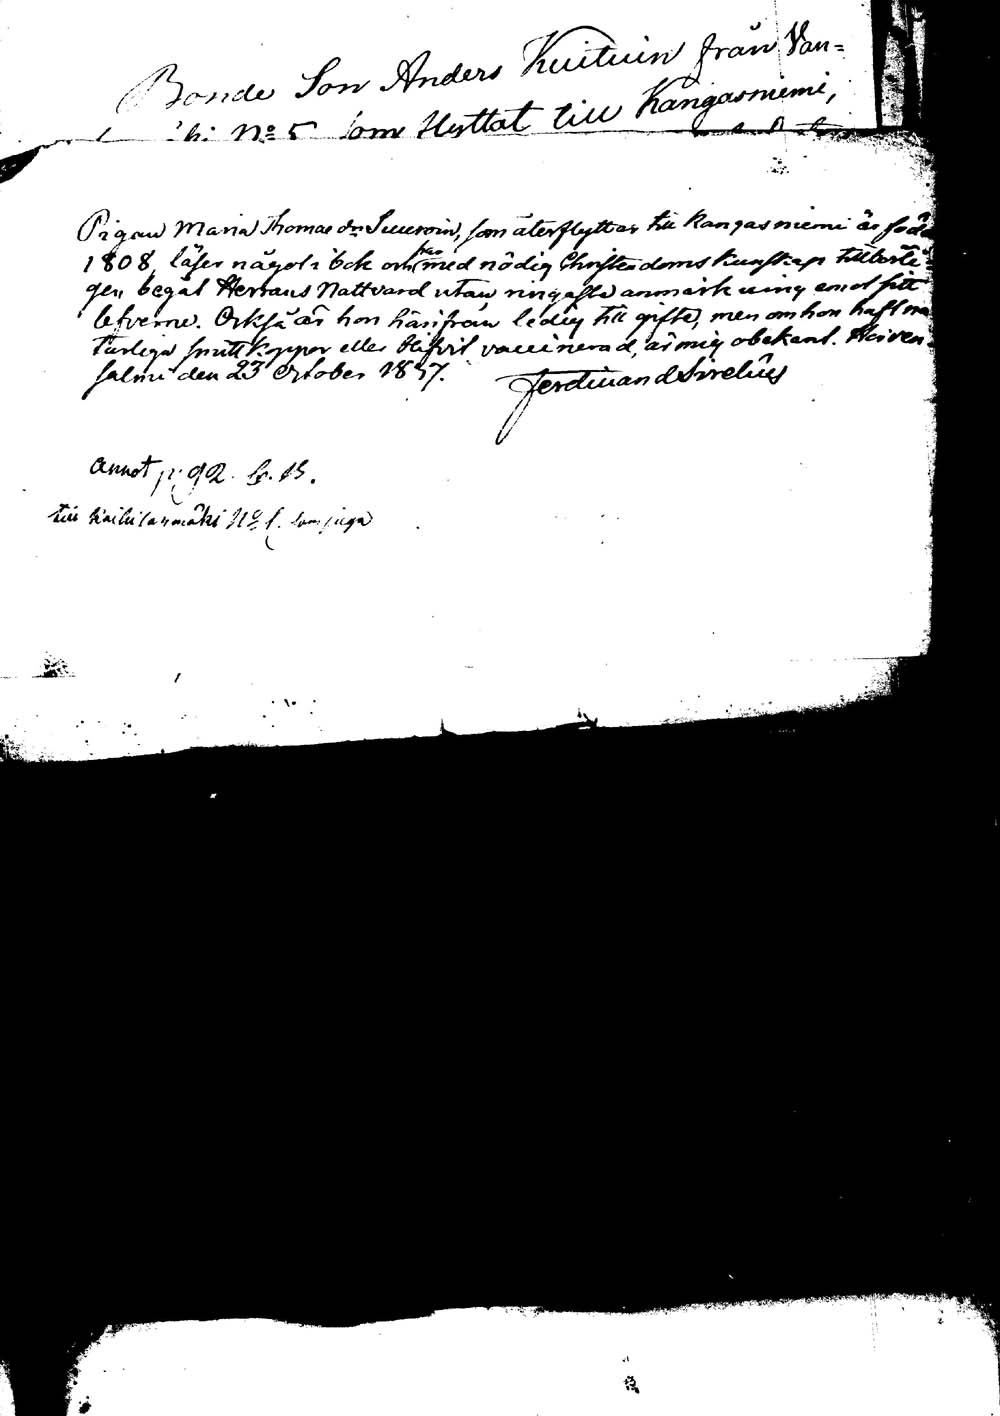 Bonde Son Anders Kuituin från Van=
ki No 5 som flyttat till Kangasniemi,
Pigan Maria Thomae dr Suuroin, som återflyttar till Kangasniemi är född
1808, läser någol. i bok och med nödig Christendoms kunskap tillbörli=
gen begåt Herrans Nattvard utan ringaste anmärkning emot sitt
lefverne. Också är hon härifrån ledig till gifte, men om hon haft na
turliga smittkoppor eller blifvit vaccinerad, är mig obekant. Hairen=
salmi den 23 October 1837.
Ferdinand Sirelius
Annot p. 92. Fr. 13.
till No 1. som piga